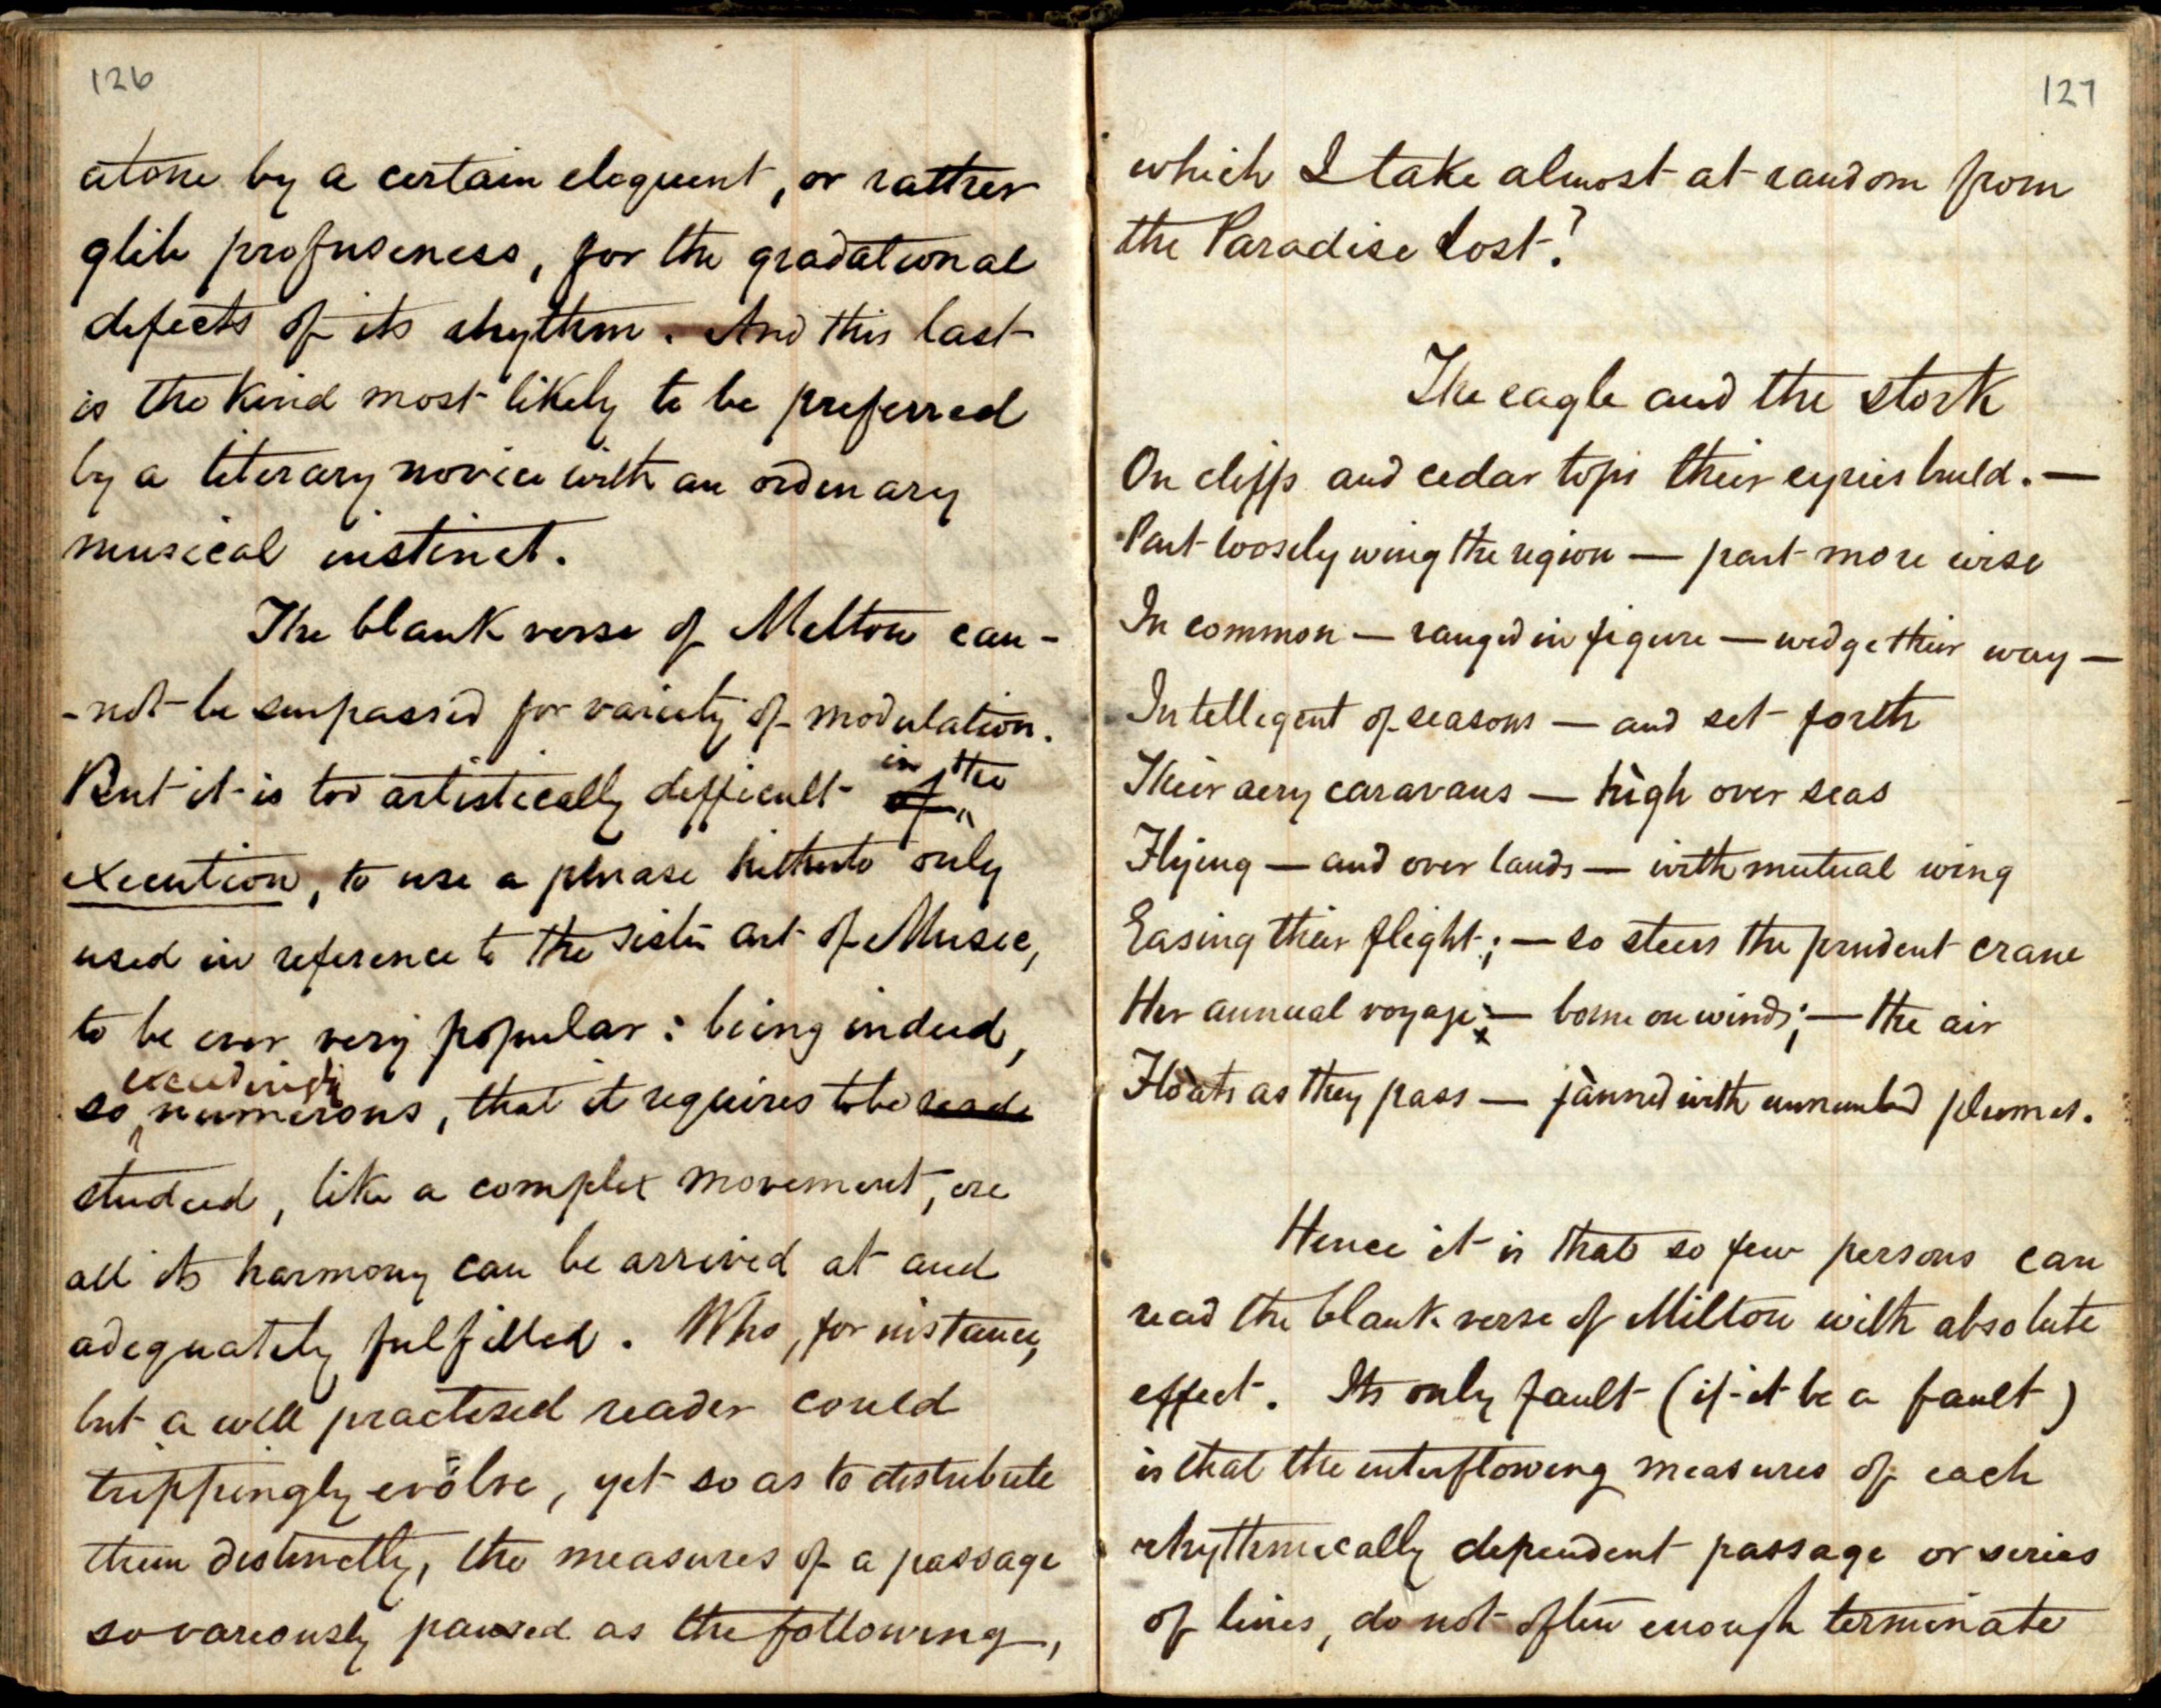 126
atone by a certain eloquent, or rather
glib profuseness, for the gradational
defects of its rhythm. And this last
is the kind most likely to be preferred
by a literary novice with an ordinary
musical instinct.
The blank verse of Milton can-
-not be surpassed for variety of modulation.
But it is too artistically difficult of in the
execution, to use a phrase hitherto only
used in reference to the sister art of Music,
to be ever very popular: being indeed,
so exceedingly numerous, that it requires to be read
studied, like a complex movement, ere
all its harmony can be arrived at and
adequately fulfilled. Who, for instance,
but a well practised reader could
trippingly evolve, yet so as to distribute
them distinctly, the measures of a passage
so variously paused as the following,
127
which I take almost at random from
the Paradise Lost?
The eagle and the stork
On cliffs and cedar tops their eyries build. —
Part loosely wing the region — part more wise
In common — ranged in figure — wedge their way —
Intelligent of seasons — and set forth
Their aery caravans — high over seas
Flying — and over lands — with mutual wing
Easing their flight; — so steers the prudent crane
Her annual voyage; — borne on winds; — the air
Floats as they pass — fanned with unnumbd plumes.
Hence it is that so few persons can
read the blank verse of Milton with absolute
effect. Its only fault (if it be a fault)
is that the interflowing measures of each
rhythmically dependent passage or series
of lines, do not often enough terminate